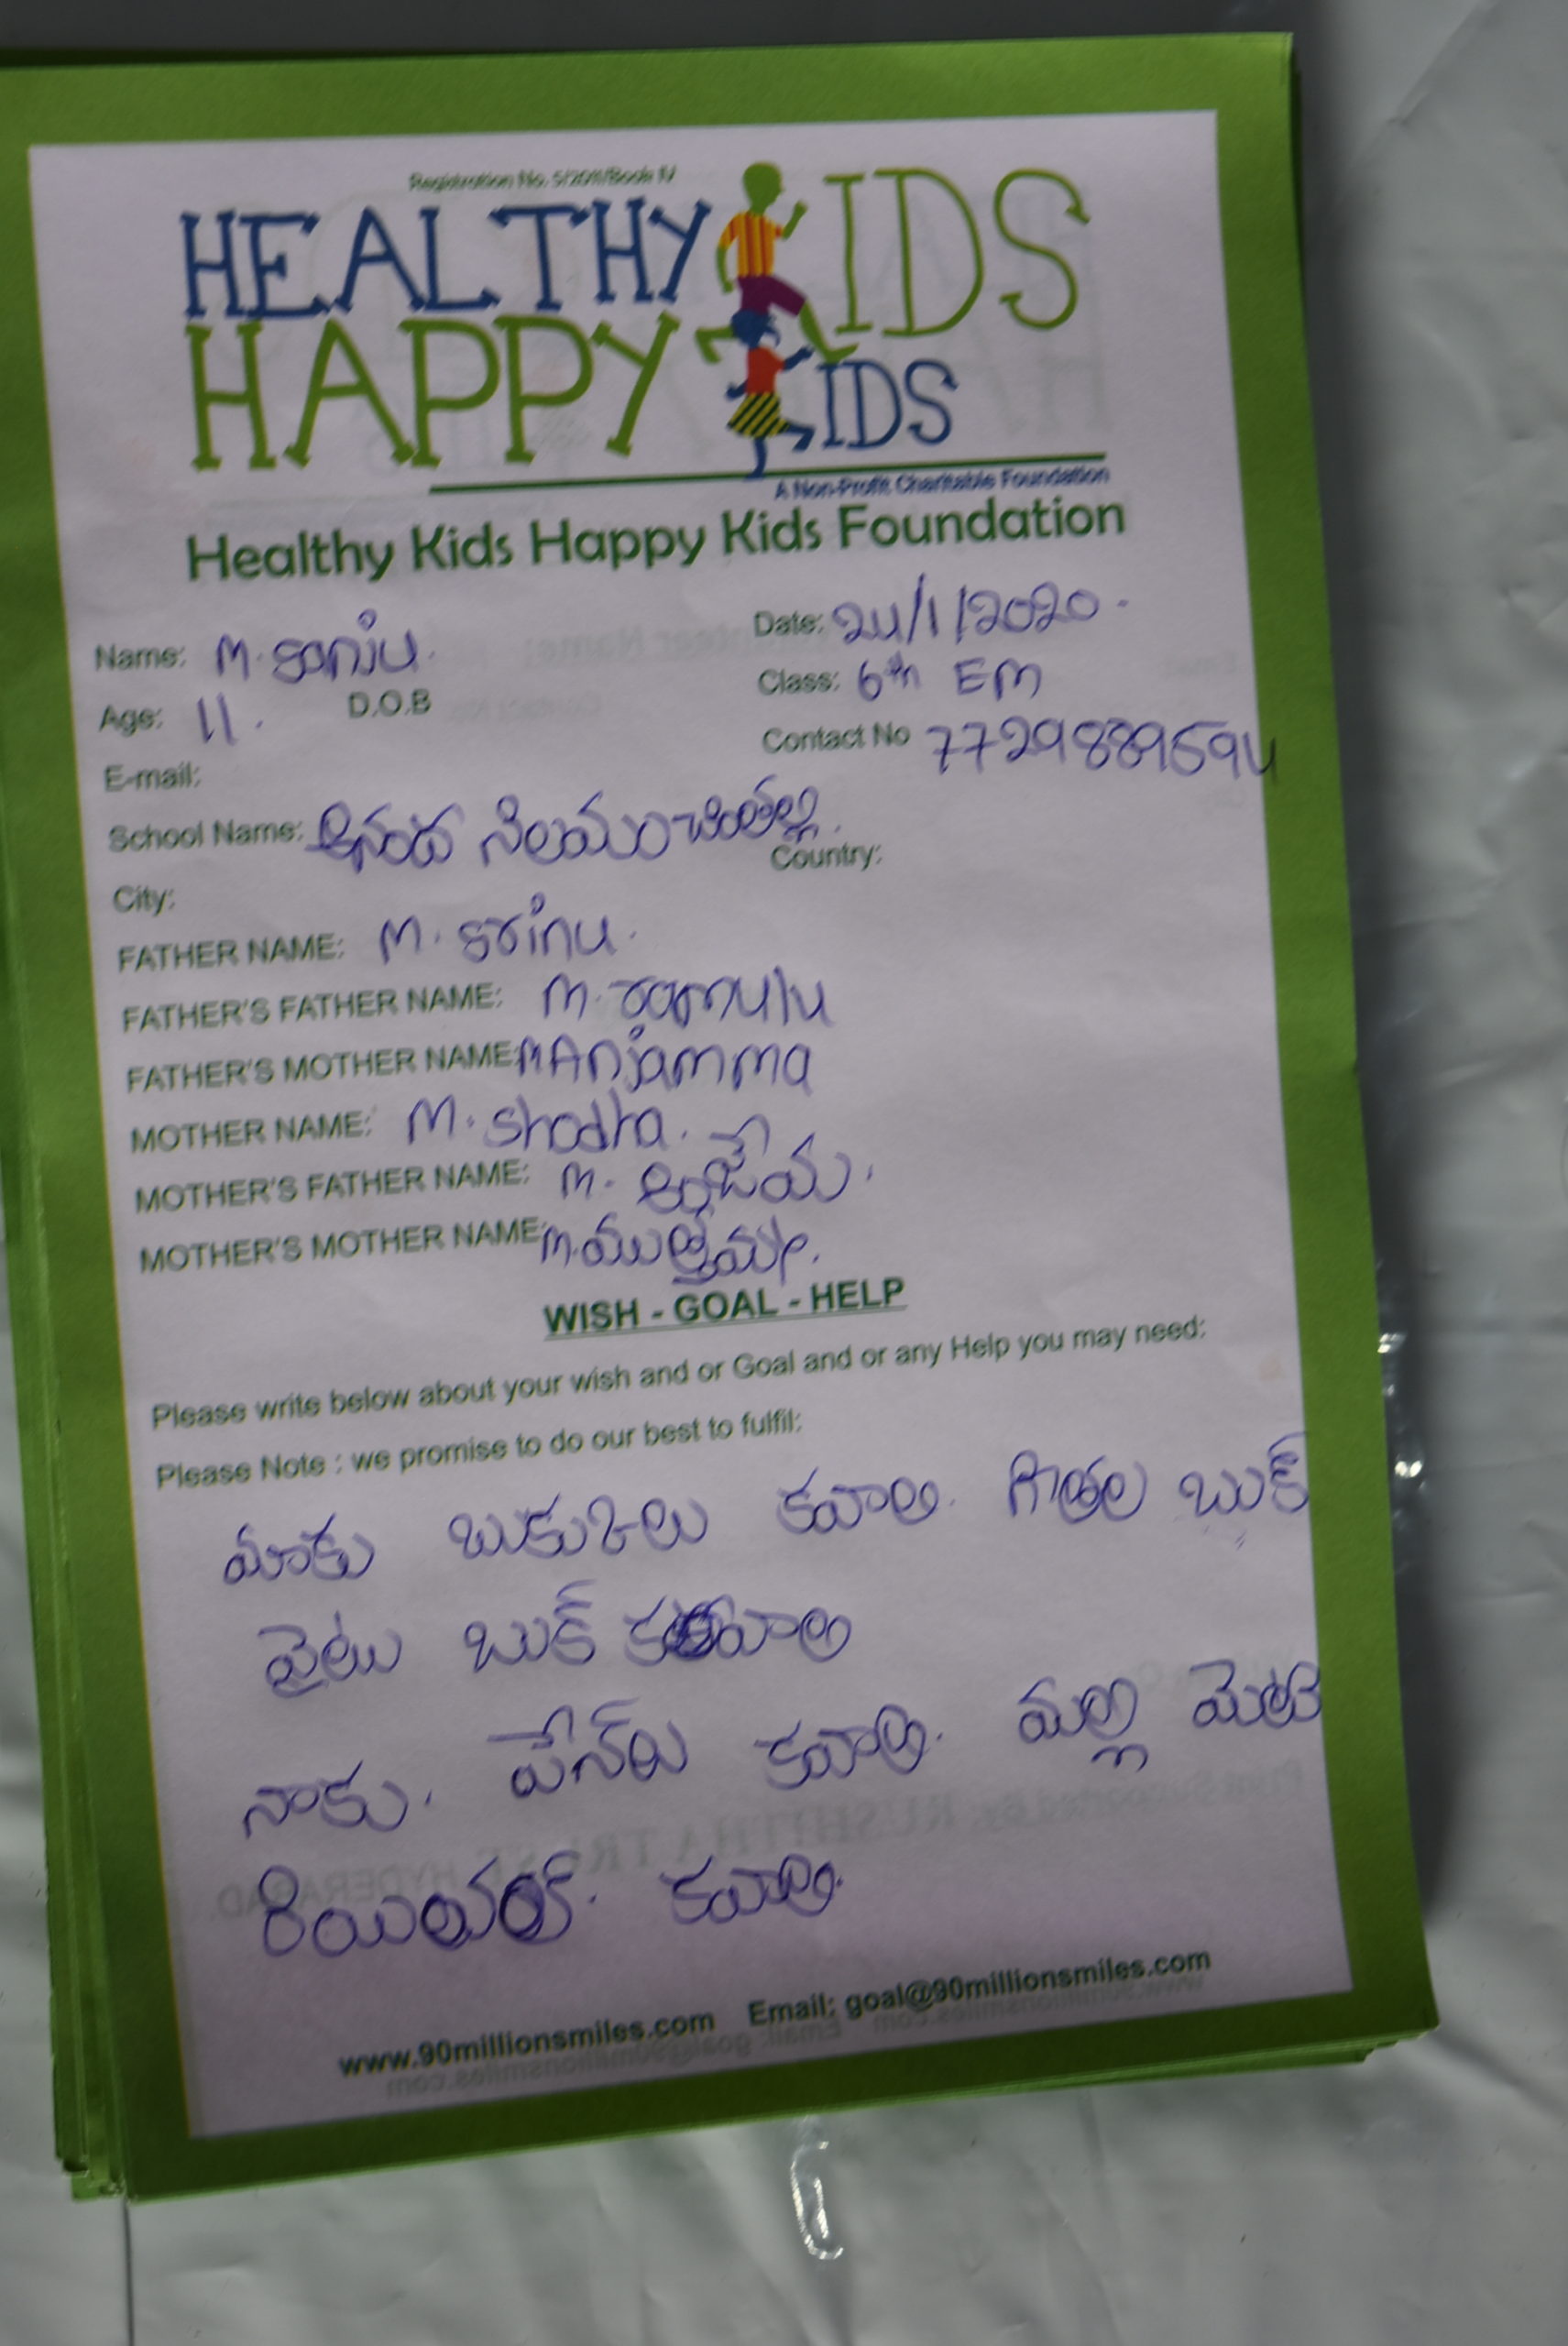 Registration No. 5/2011/Book IV
HEALTHY KIDS
HAPPY KIDS
A Non-Profit Charitable Foundation
Healthy Kids Happy Kids Foundation
Name: M. sanju. Date: 24/1/2020.
Age: 11. D.O.B Class: 6th EM
E-mail: Contact No 7729889594
School Name: ఆనంద నిలయం
City: Country:
FATHER NAME: M. srinu.
FATHER'S FATHER NAME: M. ramulu
FATHER'S MOTHER NAME: M Anjamma
MOTHER NAME: M. Shodha.
MOTHER'S FATHER NAME: M.
MOTHER'S MOTHER NAME: M.
WISH - GOAL - HELP
Please write below about your wish and or Goal and or any Help you may need:
Please Note : we promise to do our best to fulfil:
మాకు కవాలి. గితల బుక్
వైటు బుక్ కవాలి
నాకు. పేన్లు కవాలి. మల్లి
కవాలి.
www.90millionsmiles.com Email: goal@90millionsmiles.com